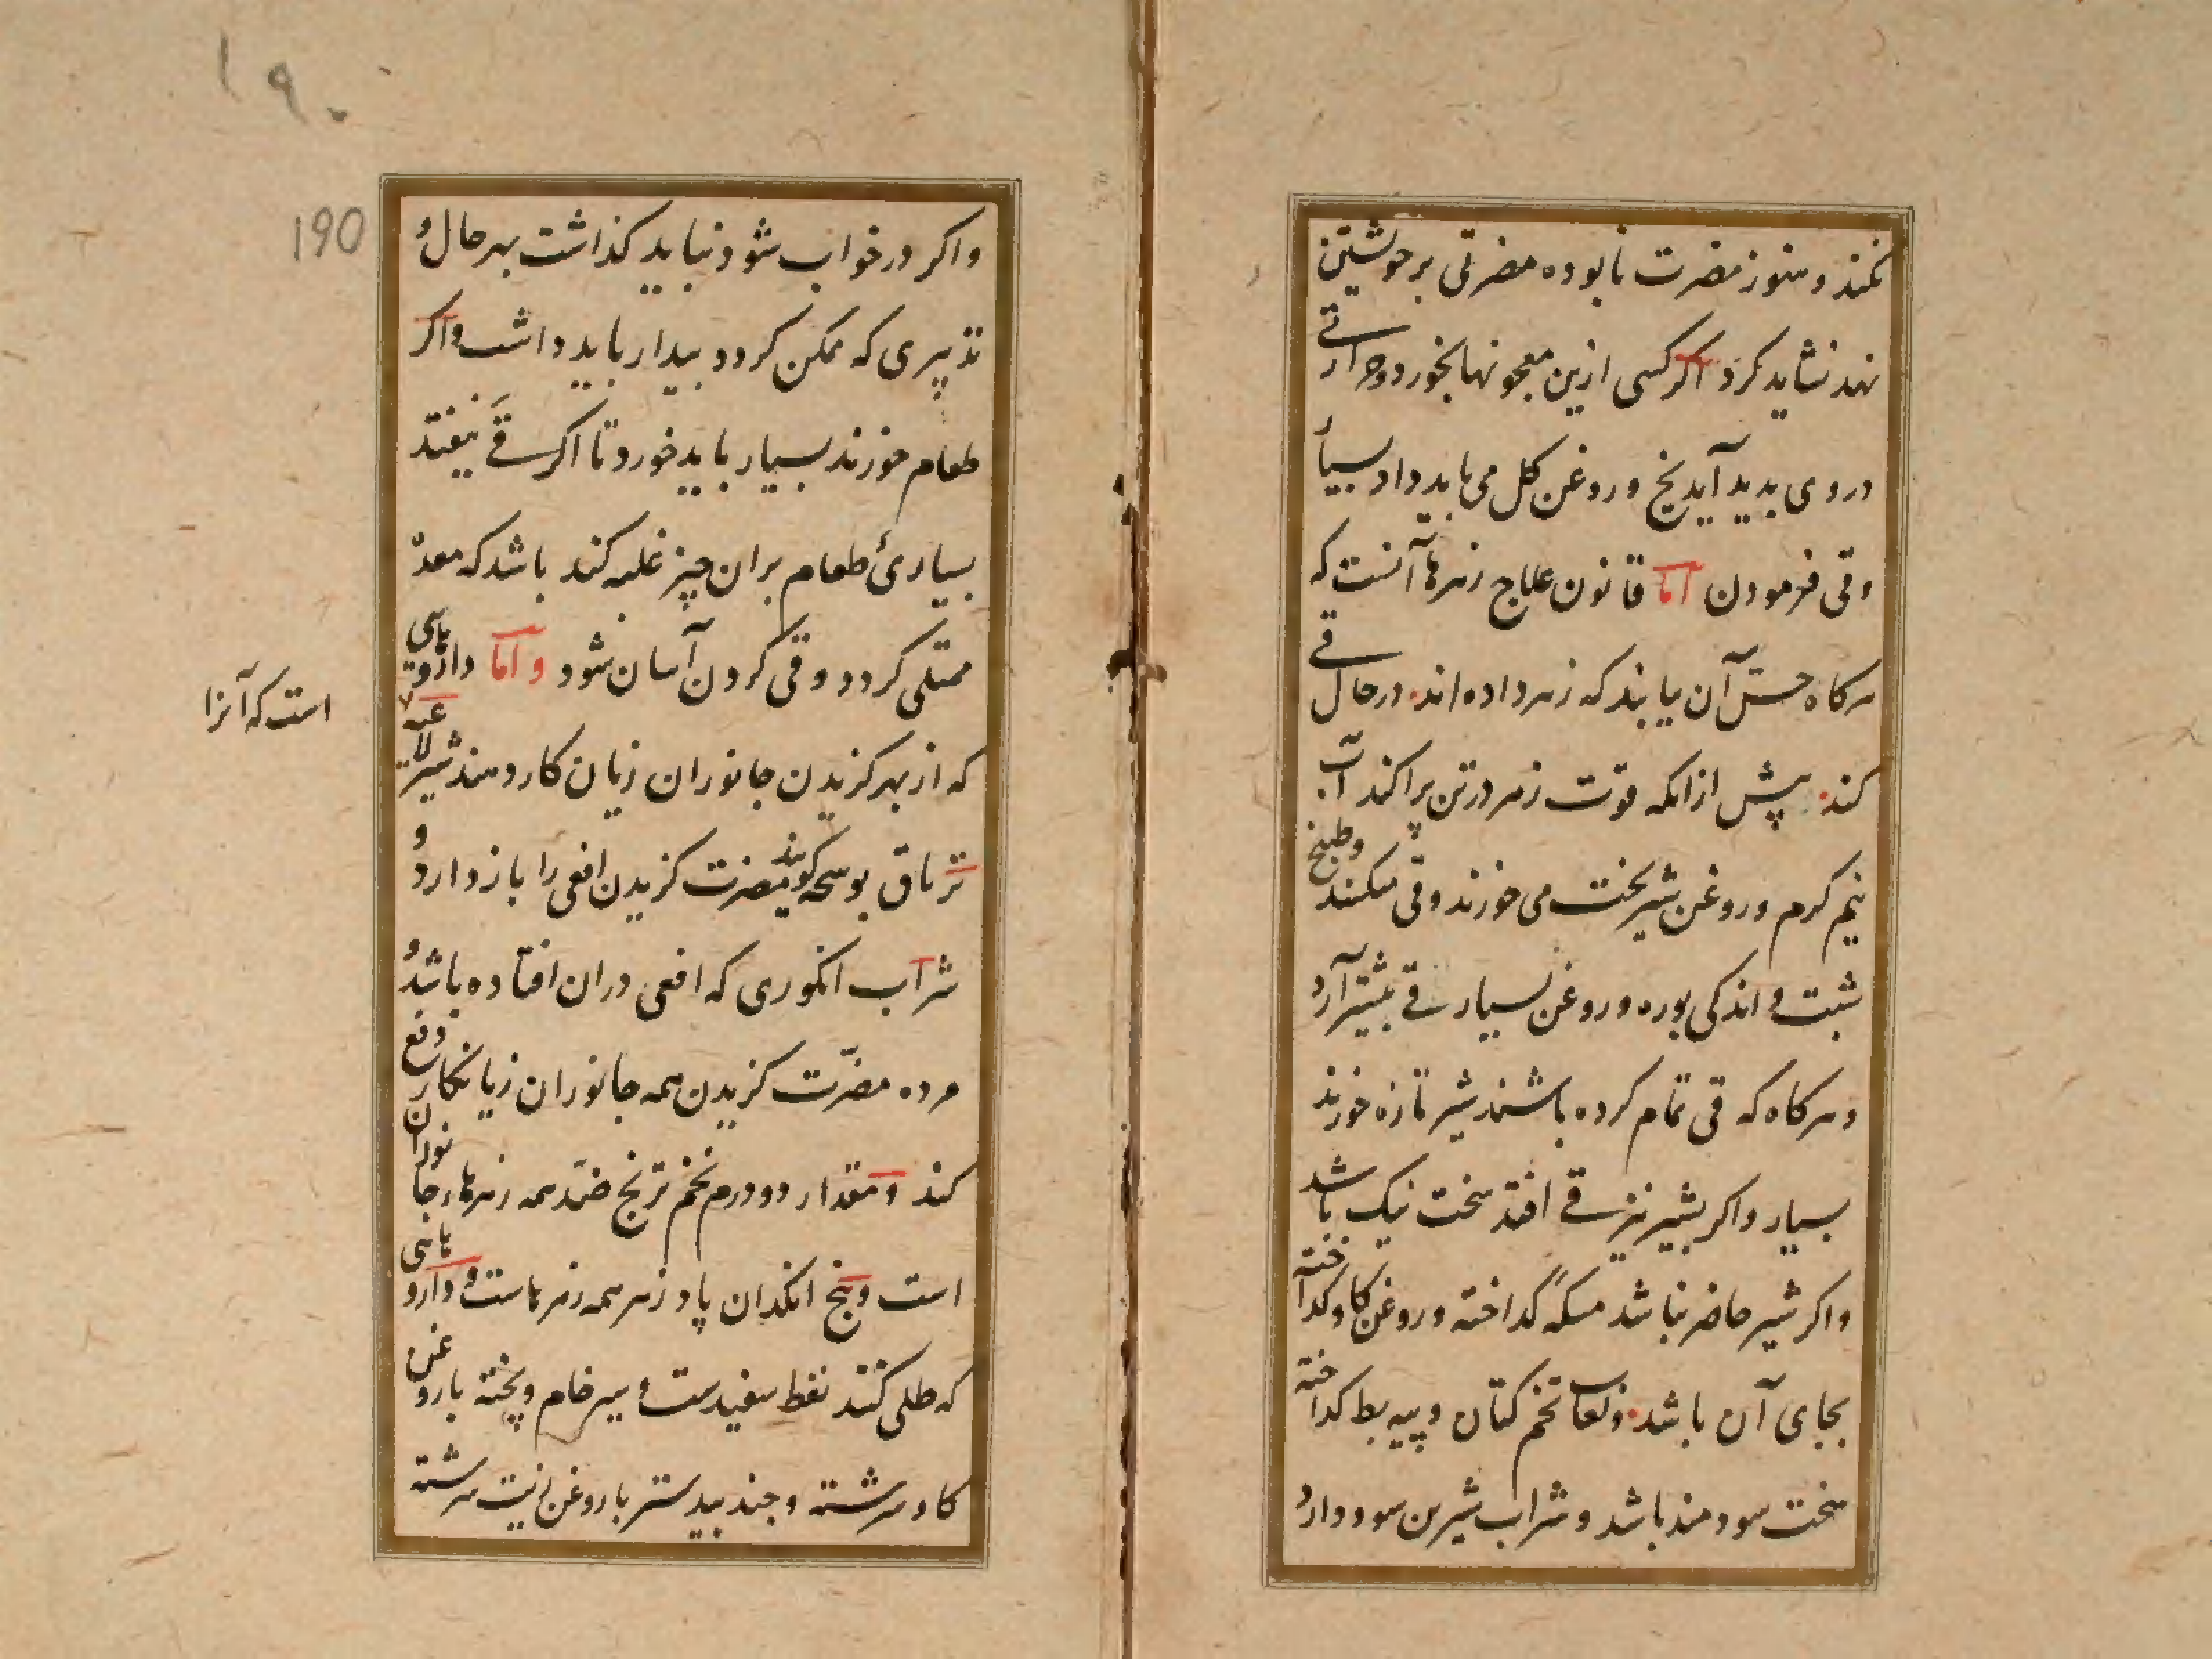 نکند و هنوز مضرت نابوده مضرتی بر خویشتن
نهد نشاید کرد اکر کسی ازین معجونها بخورد و حرارتی
در وی بدید آید یخ و روغن کل می باید داد بسیار
و قی فرمودن اما قانون علاج زهرها آنست که
هرکاه حس آن یابند که زهر داده اند در حال قی
کند پیش ازانکه قوت زهر در تن پراکند آب
نیم کرم و روغن شیربخت می خورند و قی میکنند و طبیخ
شبت و اندکی بوره و روغن بسیار قی بیشتر آرد
و هرکاه که قی تمام کرده باشند شیر تازه خورند
بسیار و اکر بشیر نیز قی افتد سخت نیک باشد
و اکر شیر حاضر نباشد مسکه کداخته و روغن کاو کداخته
بجای آن باشد و لعاب تخم کتان و پیه بط کداخته
سخت سودمند باشد و شراب شیرین سود دارد
۱۹۰
190
و اکر در خواب شود نباید کذاشت بهر حال و
تدبیری که ممکن کردد بیدار باید داشت و اکر
طعام خورند بسیار باید خورد تا اکر قی نیفتد
بسیاریٔ طعام بران چیز غلبه کند باشد که معده
ممتلی کردد و قی کردن آسان شود و اما داروهایی
که از بهر کزیدن جانوران زیان کار دهند شیر لاعیه
است که آنرا
تریاق بوسحه کویند مضرت کزیدن افعی را باز دارد و
شراب انکوری که افعی دران افتاده باشد و
مرده مضرّت کزیدن همه جانوران زیانکار دفع
کند و مقدار دو درم تخم ترنج ضد همه زهرهاء جانوران
است و بیخ انکدان پادزهر همه زهرهاست و داروهایی
که طلی کنند نفط سفیدست و سیر خام و پخته با روغن
کاو سرشته و جندبیدستر با روغن زیت سرشته